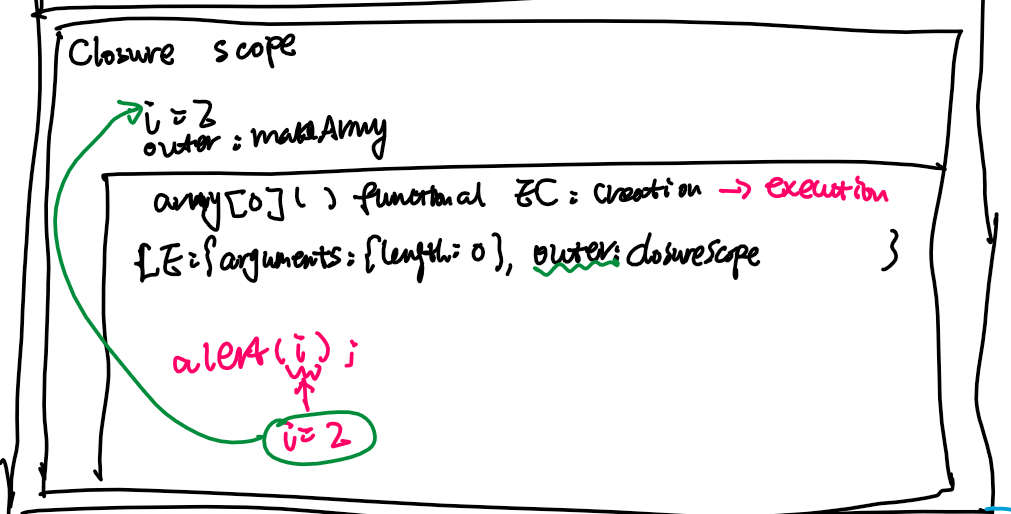 Closure scope
i = 2
outer : makeArray
array[0]( ) functional EC : creation → execution
{LE:{arguments:{length:0}, outer:closureScope }
alert(i);
i = 2